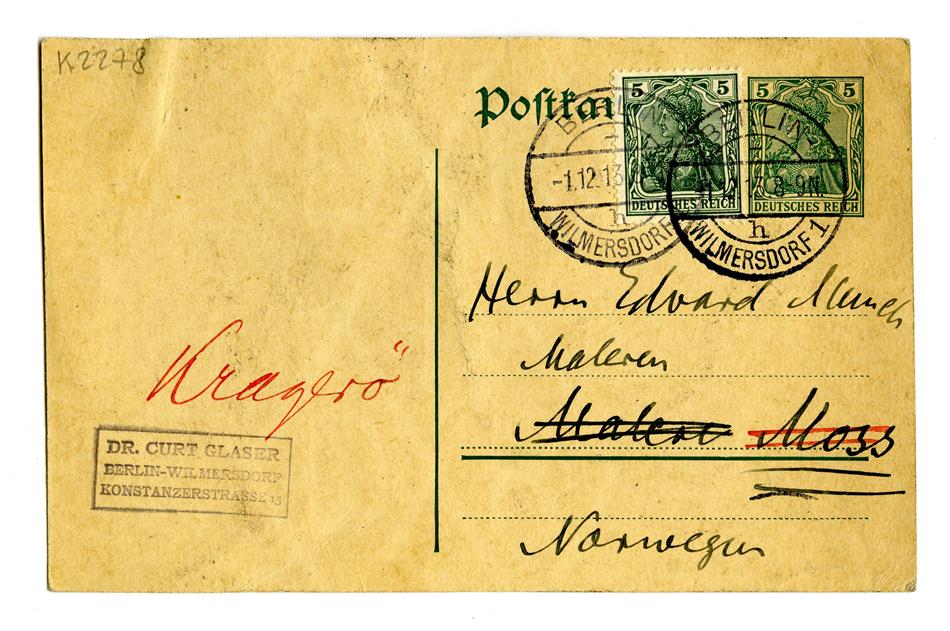 K2278
Postkar
5 5
DEUTSCHES REICH
5 5
DEUTSCHES REICH
BERLIN
-1.12.13
h
WILMERSDORF
BERLIN
8-9N.
h
WILMERSDORF 1
Herrn Edvard Munch
Maleren
Maleren Moss
Norwegen
Kragerö
DR. CURT GLASER
BERLIN-WILMERSDORF
KONSTANZERSTRASSE 15